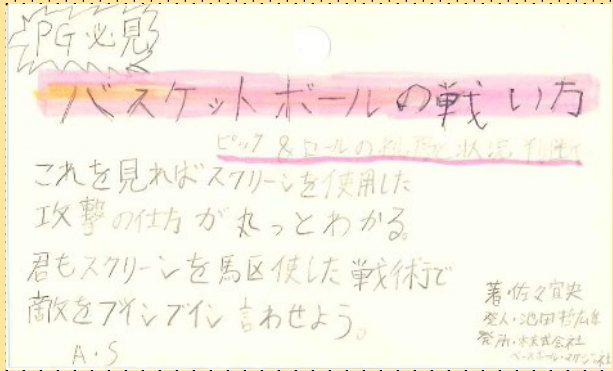 PG必見
バスケットボールの戦い方
ピック&ロールの 状況判断
これを見ればスクリーンを使用した
攻撃の仕方が丸っとわかる。
君もスクリーンを馬区使した戦術で
敵をブインブイン言わせよう。
A・S
著・佐々宜央
発人・池田哲雄
発所・株式会社
ベースボール・マガジン社